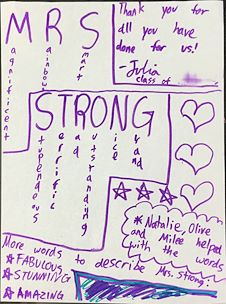 MRS
agnificent
ainbow
mart
Thank you for
all you have
done for us!
-Julia
class of
STRONG
tupendous
errific
ad
utstanding
ice
rand
*Natalie, Olive
and Milee helped
with the words
More words to describe Mrs. Strong:
FABULOUS
STUNNING
AMAZING